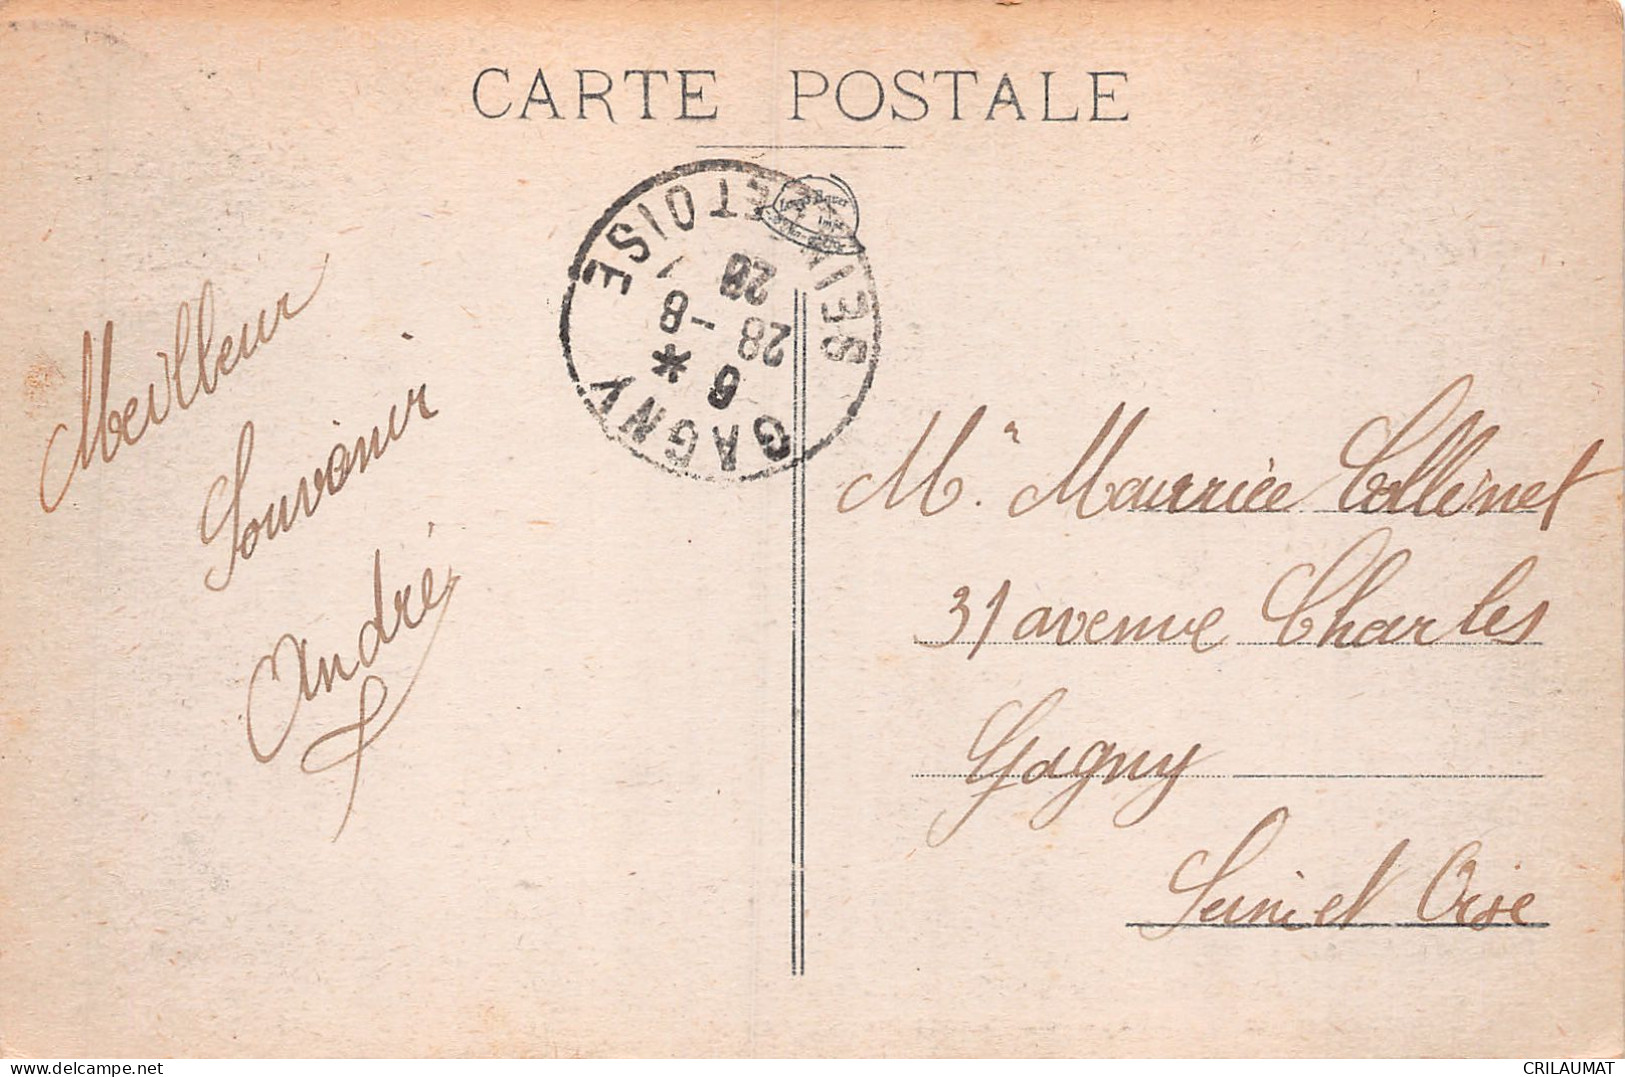 CARTE POSTALE
GAGNY
SEINE ET OISE
6 *
28 -8
20
Meilleur
Souvenir
André
Mr. Maurice Collinet
31 avenue Charles
Gagny
Seine et Oise
delcampe.net
CRILAUMAT